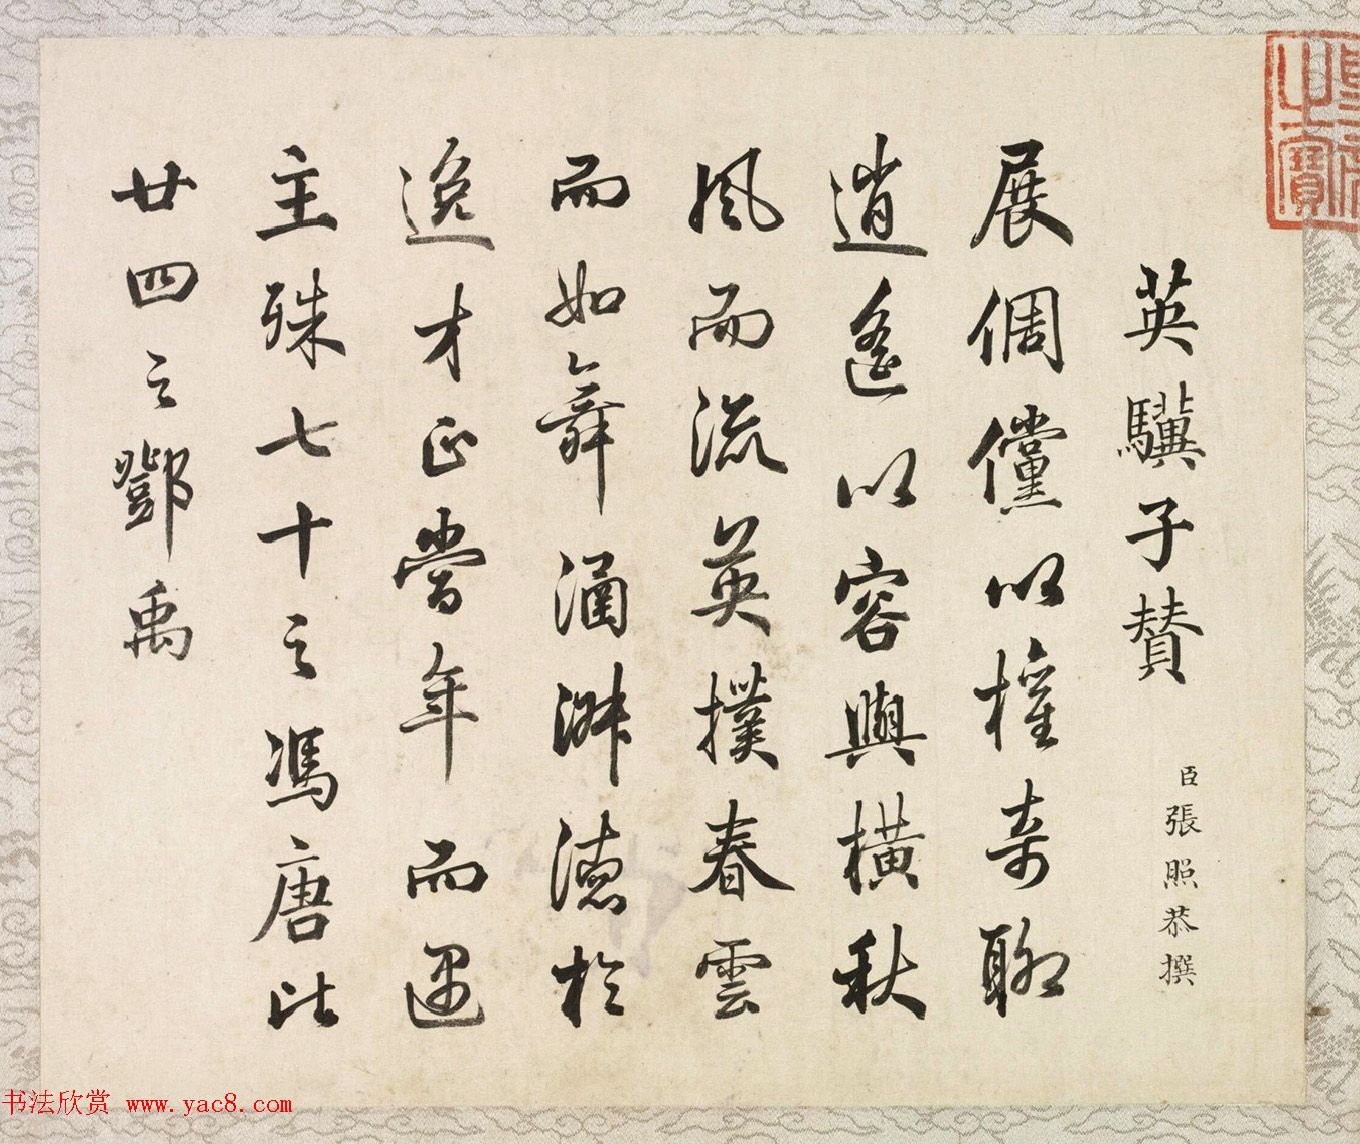 英驥子贊
臣張照恭撰
展倜儻以權奇聊
逍遙以容與橫秋
風而流英撲春雲
而如舞滷淋德於
逸才正當年而遇
主殊七十之馮唐比
廿四之鄧禹
之寶
书法欣赏 www.yac8.com